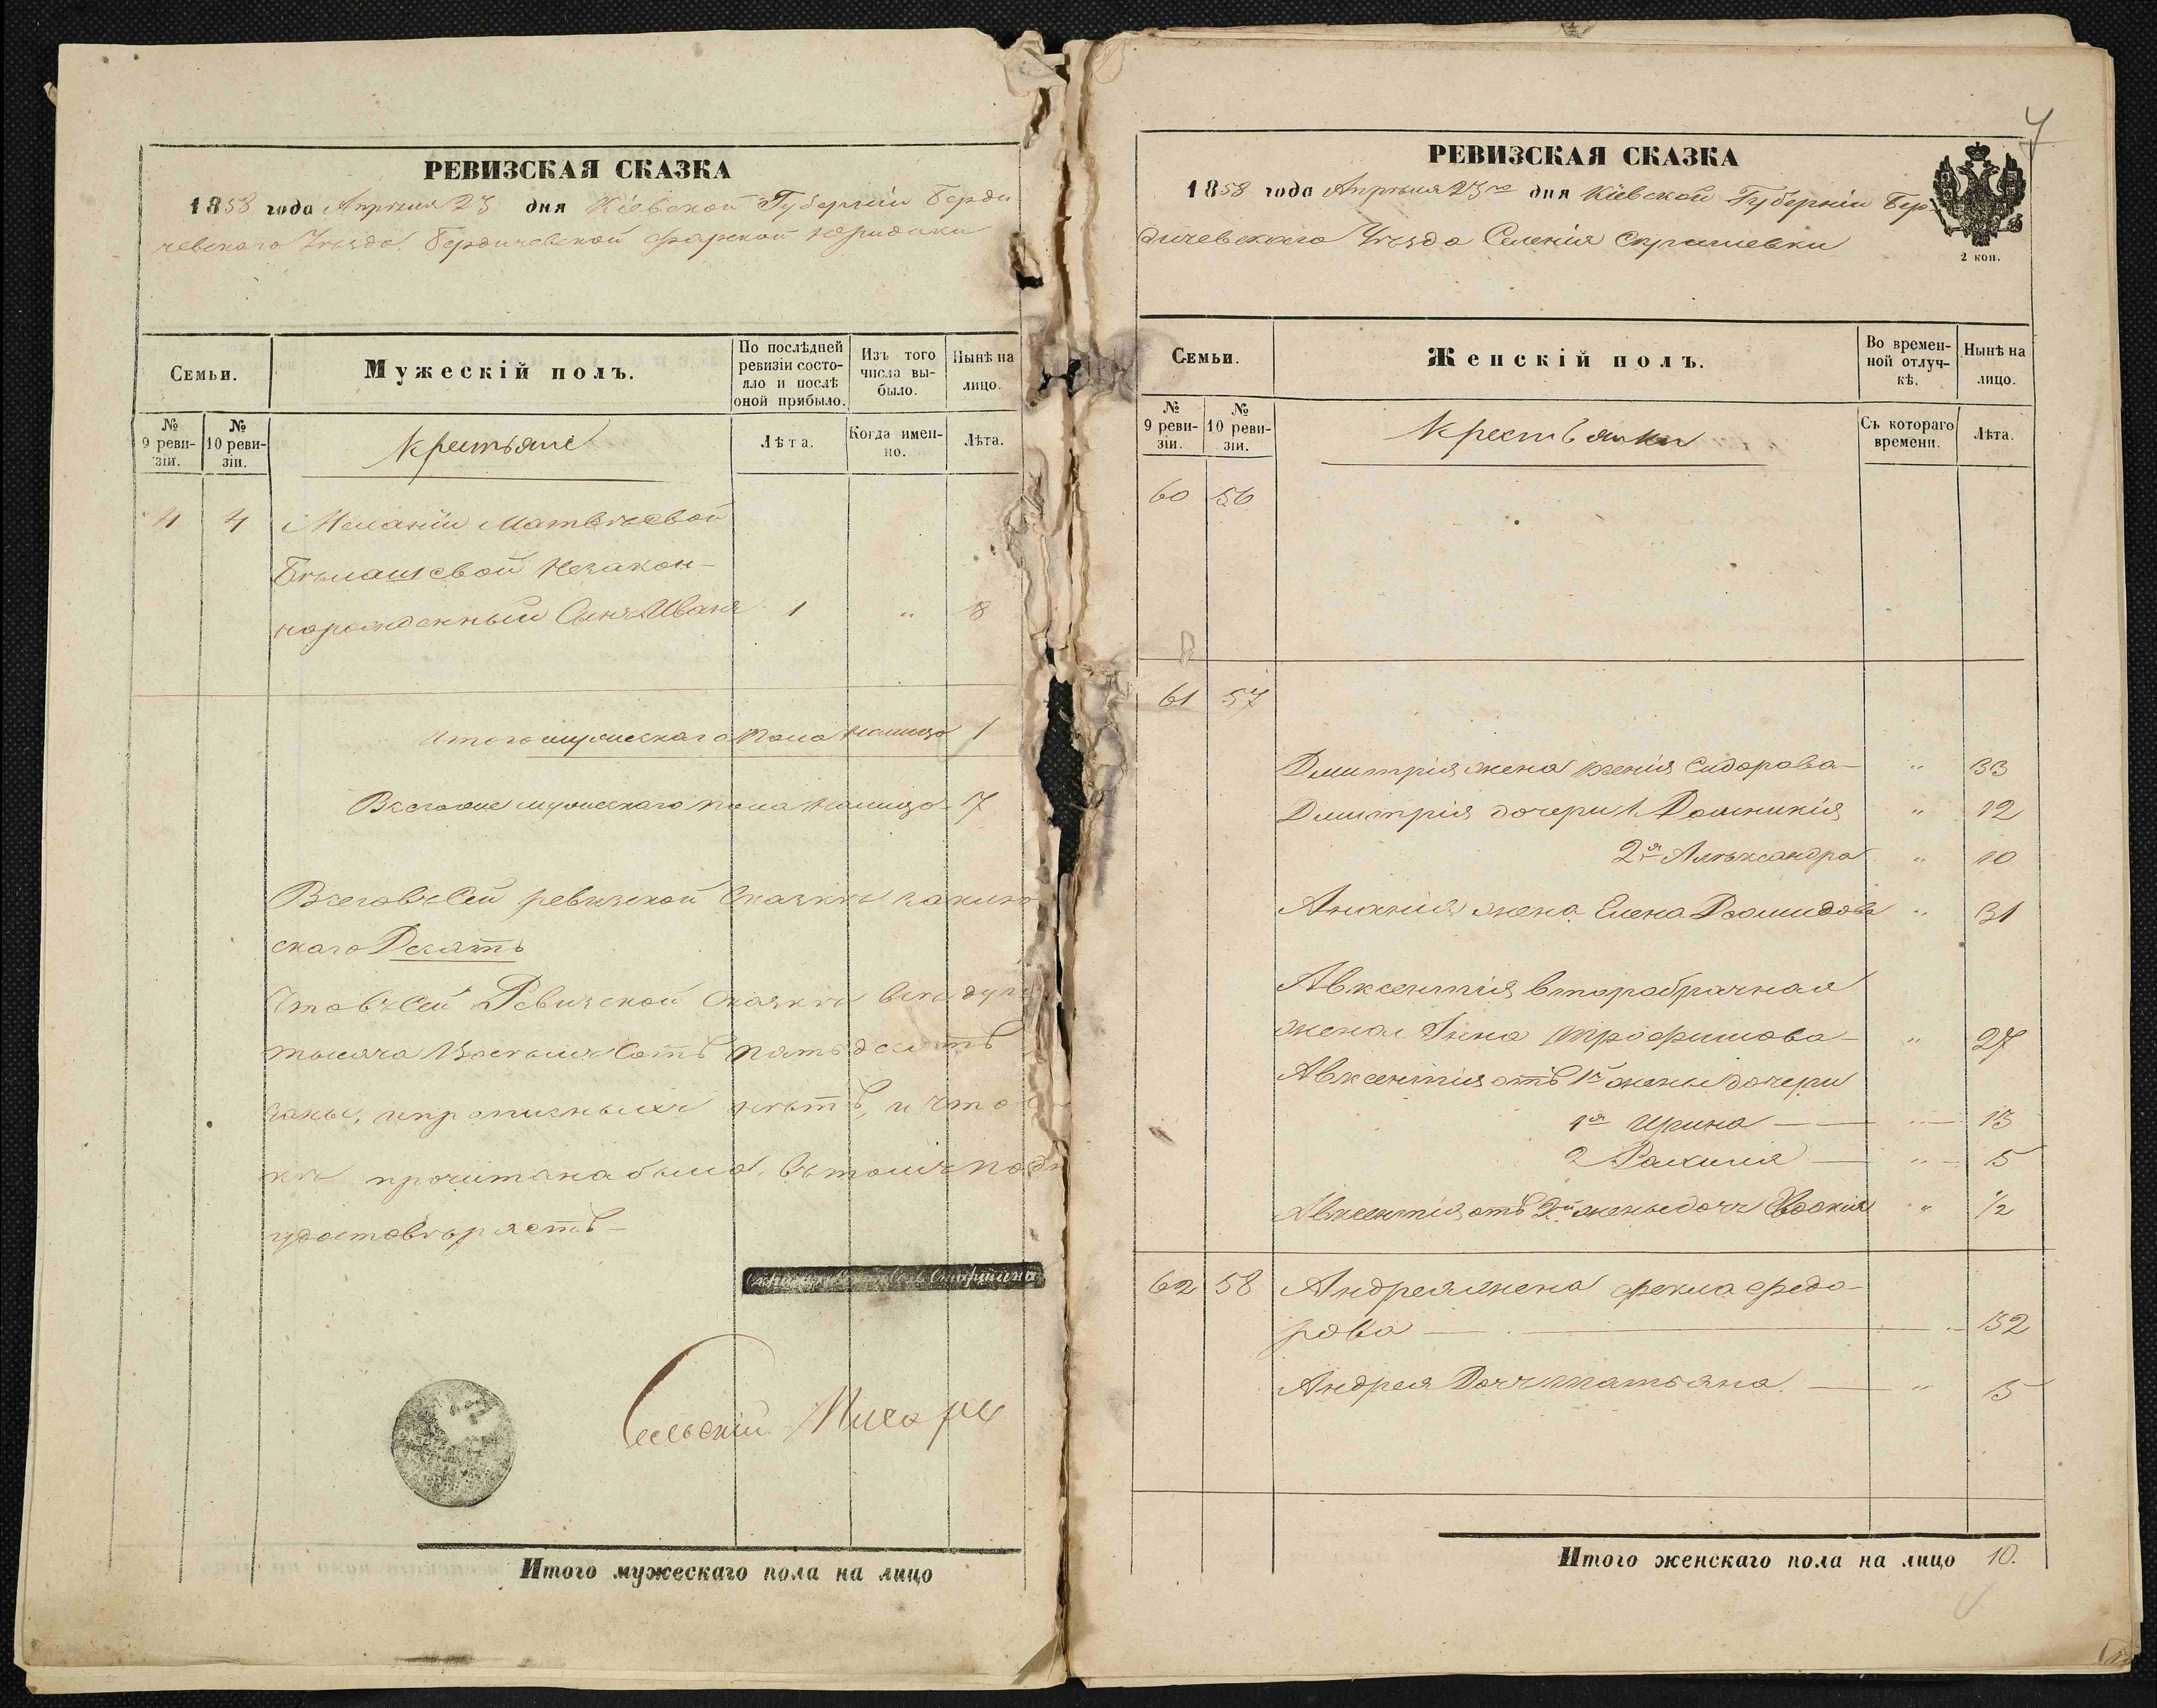 РЕВИЗСКАЯ СКАЗКА
1858 года Апрѣля 23 дня Кіевской Губерніи Берди
чевскаго Уѣзда Бердичевской фарской юридики
Семьи.
Мужескій полъ.
По послѣдней ревизіи состояло и послѣ оной прибыло.
Изъ того числа выбыло.
Нынѣ на лицо.
№ 9 ревизіи.
№ 10 ревизіи.
Крестьяне
Лѣта.
Когда именно.
Лѣта.
4 4 Меланіи Матвѣевой
незакон-
норожденный Сынъ Иванъ 1 " 8
Итого мужескаго пола налицо 1
Всего же мужескаго пола налицо 7
Всего въ сей ревизской сказкѣ
скаго Десять
Что въ сей Ревизской сказкѣ всѣ души
тысяча восемь сотъ пятьдесятъ
заны, и прописныхъ нѣтъ, и что
кѣ прочитана была, въ томъ
удостовѣряетъ
Сельскій Писарь
Итого мужескаго пола на лицо
7
РЕВИЗСКАЯ СКАЗКА
1858 года Апрѣля 23го дня Кіевской Губерніи Бер-
дичевскаго Уѣзда Селенія
2 коп.
Семьи.
Женскій полъ.
Во временной отлучкѣ.
Нынѣ на лицо.
№ 9 ревизіи.
№ 10 ревизіи.
Крестьянки
Съ котораго времени.
Лѣта.
60 56
61 57
Дмитрія жена Ксенія Сидорова " 33
Дмитрія дочери 1 Домникія " 12
2я Алѣксандра " 10
Ананія жена Елена " 31
Авксентія второбрачная
жена Анна Трофимова " 27
Авксентія отъ 1й жены дочери
1я Ирина " 13
2 " 5
Авксентія отъ 2й жены дочь " 1/2
62 58 Андрея жена Фекла Федо-
рова " 52
Андрея Дочь Татьяна "
Итого женскаго пола на лицо 10.